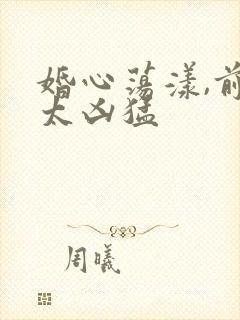 婚心荡漾,前
太凶猛
周曦